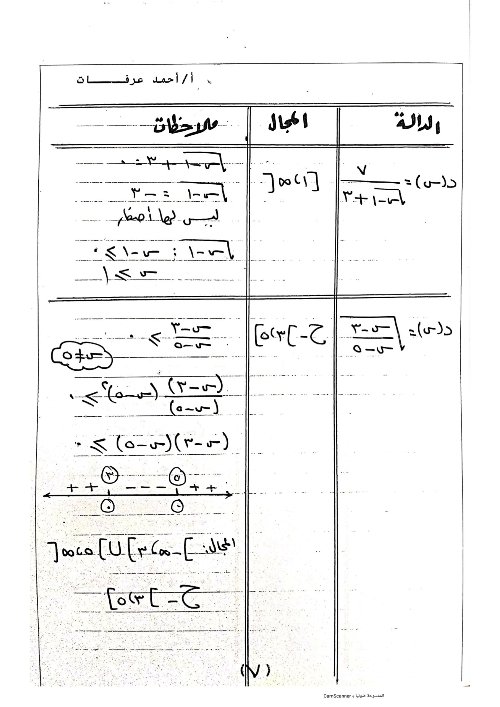 أ/أحمد عرفات
الدالة | المجال | ملاحظات
د(س) = ٧ / (√(س-١) + ٣) | [١، ∞[ | √(س-١) + ٣ = ٠
√(س-١) = -٣
ليس لها أصفار
√(س-١) : س-١ ≥ ٠
س ≥ ١
د(س) = √((س-٣)/(س-٥)) | ح - ]٣، ٥] | (س-٣)/(س-٥) ≥ ٠
س ≠ ٥
(س-٣)/(س-٥) (س-٥)² ≥ ٠
(س-٣)(س-٥) ≥ ٠
+ + ٣ - - - ٥ + +
٠ ٠
المجال: ]-∞، ٣] ∪ ]٥، ∞[
ح - ]٣، ٥]
(٧)
الممسوحة ضوئيا بـ CamScanner